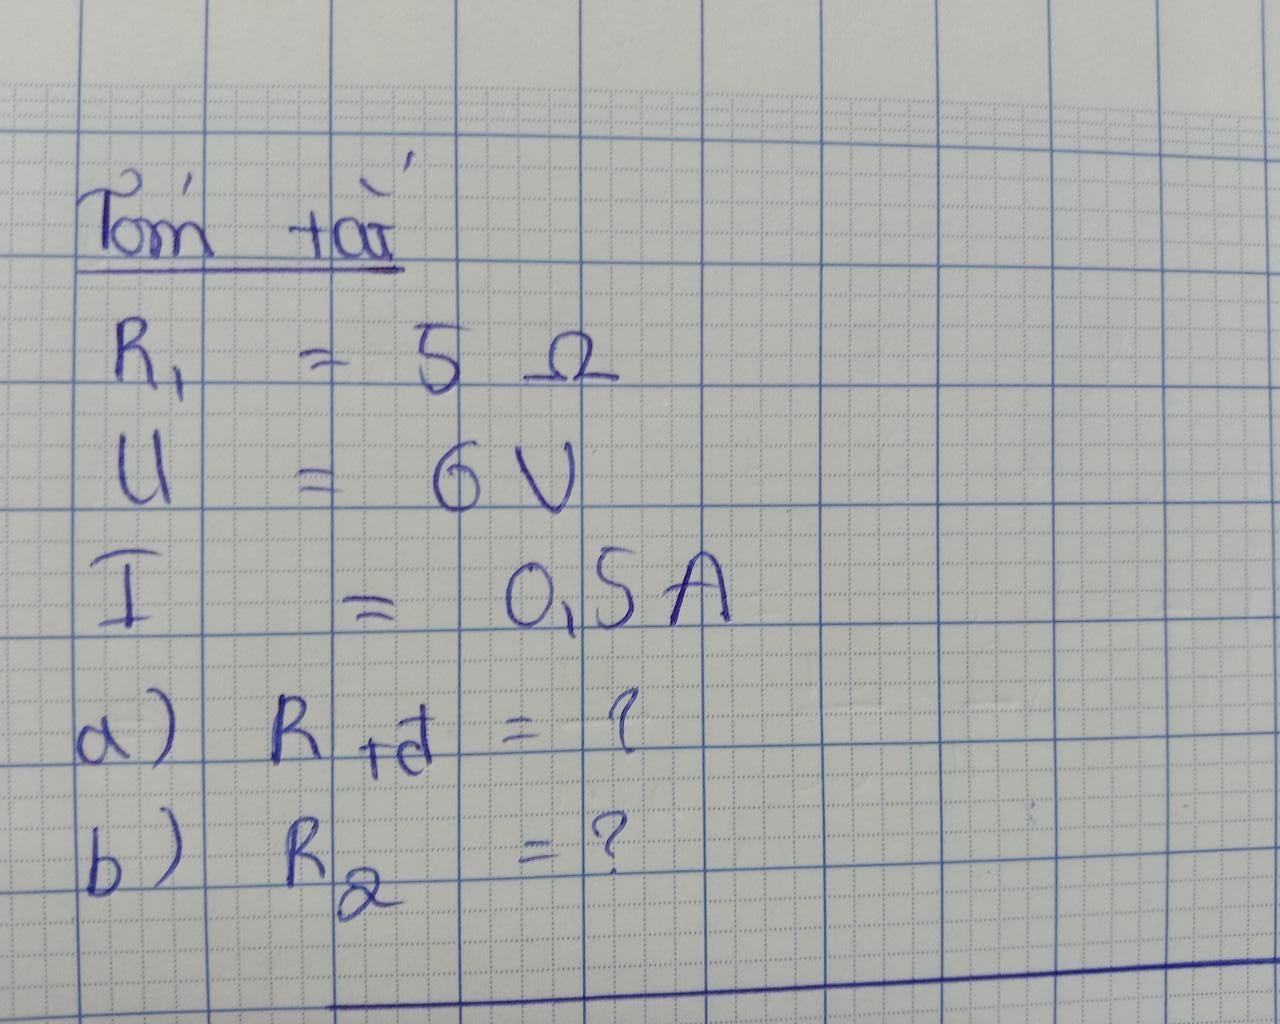 Tóm tắt
R₁ = 5 Ω
U = 6 V
I = 0,5 A
a) R tđ = ?
b) R₂ = ?